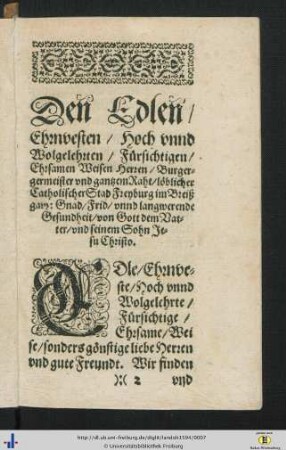 Den Edlen /
Ehrnvesten / Hoch vnnd
Wolgelehrten / Fürsichtigen /
Ehrsamen Weisen Herren / Burger-
germeister vnd gantzem Raht / löblicher
Catholischer Stad Freyburg im Breiß
gaw: Gnad / Frid / vnnd langwerende
Gesundheit / von Gott dem Vat-
ter / vnd seinem Sohn Je-
su Christo.
EDle / Ehrnve-
ste / Hoch vnnd
Wolgelehrte /
Fürsichtige /
Ehrsame / Wei
se / sonders gönstige liebe Herren
vnd gute Freundt. Wir finden
)( 2 vnd
http://dl.ub.uni-freiburg.de/diglit/landolt1594/0007
© Universitätsbibliothek Freiburg